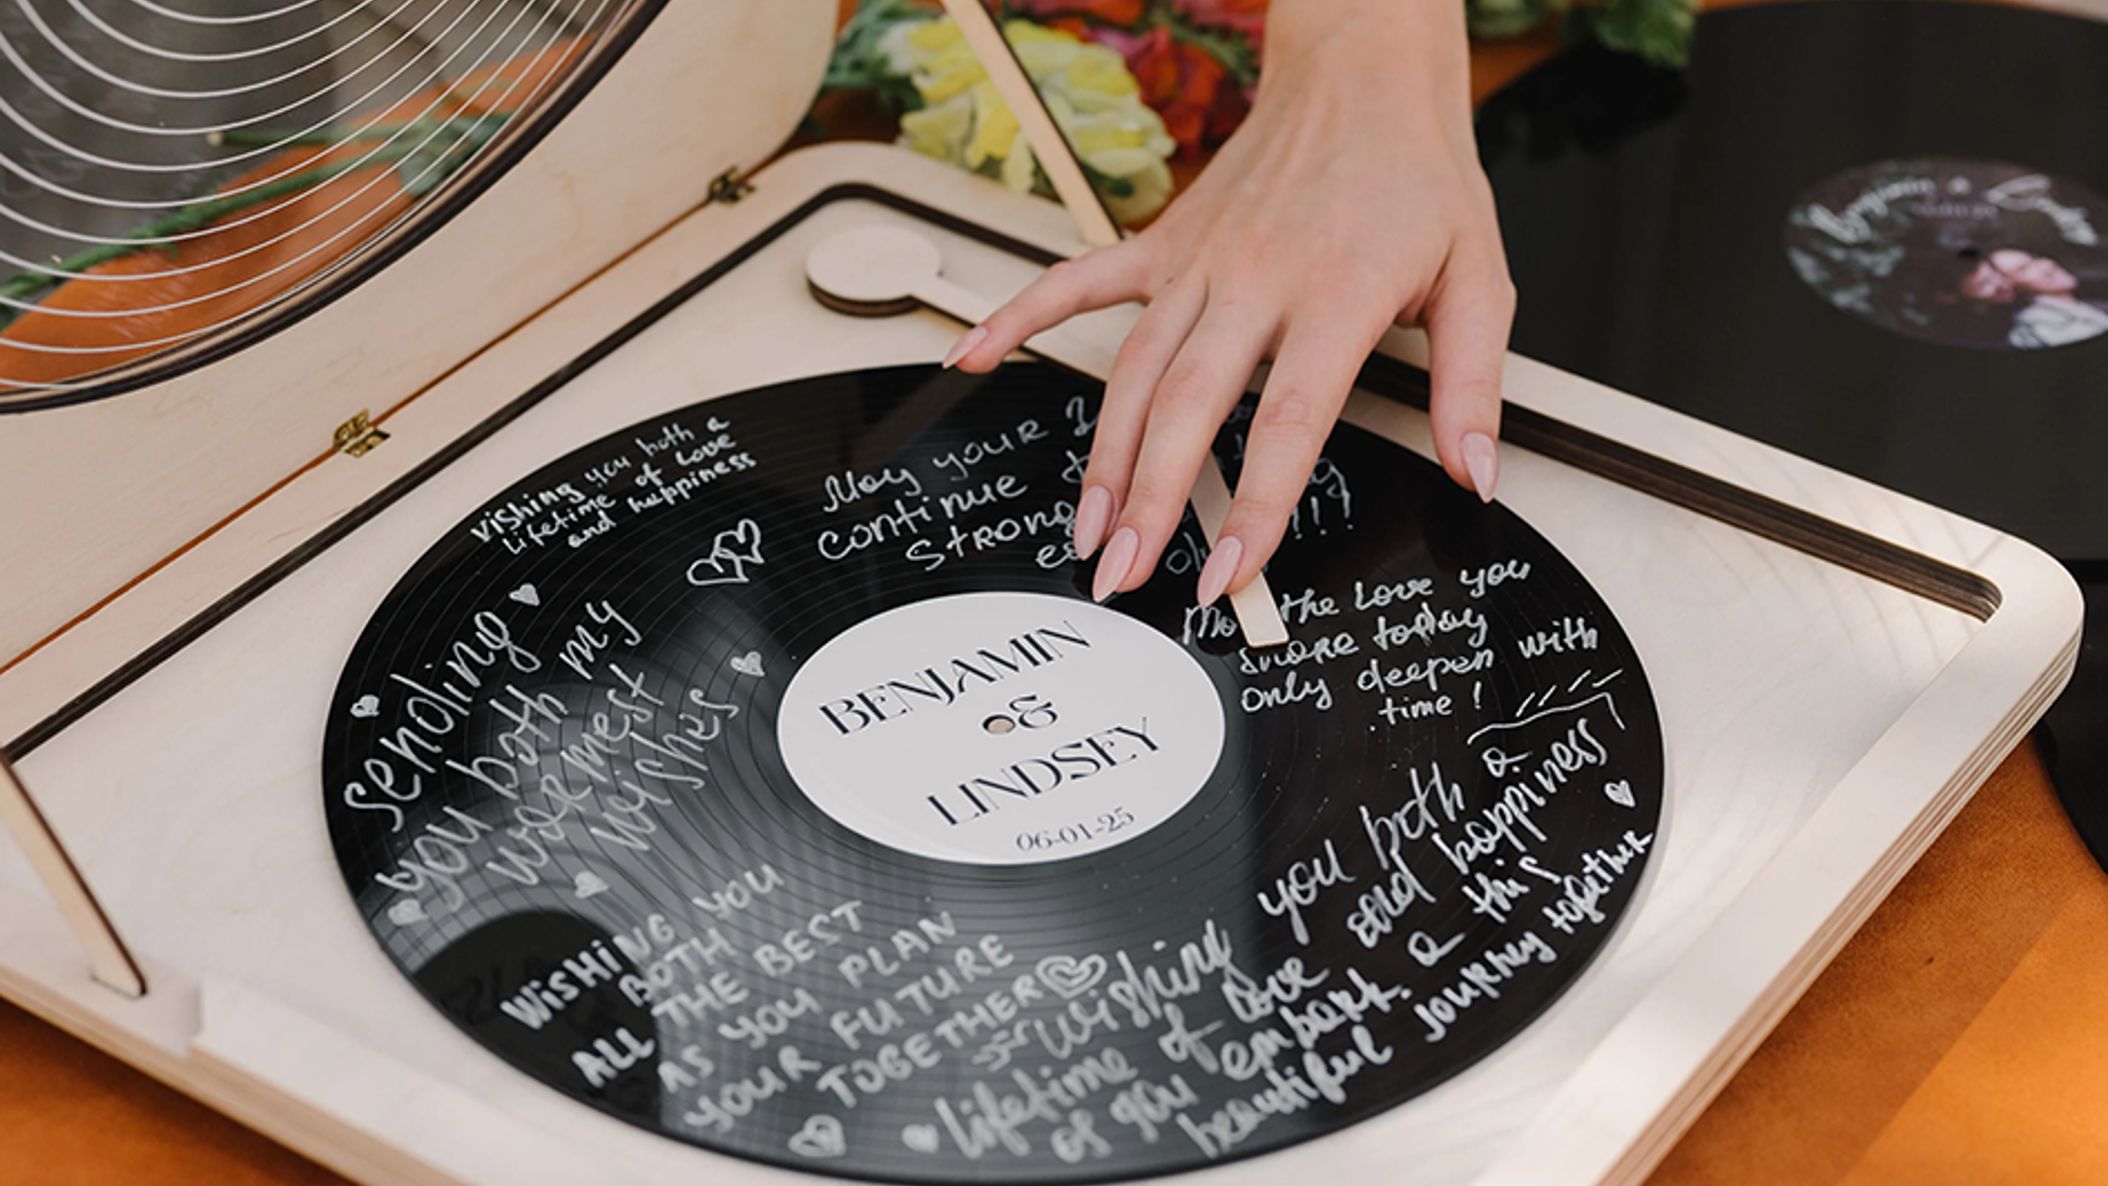 BENJAMIN
&
LINDSEY
06-01-25
Wishing you both a
lifetime of love
and happiness
May your
continue
strong
Sending
you both my
warmest
wishes
the love you
share today
only deepen with
time!
WISHING YOU
BOTH
ALL THE BEST
AS YOU PLAN
YOUR FUTURE
TOGETHER
Wishing you both a
lifetime of love and happiness
as you embark a this
beautiful journey together
Benjamin &